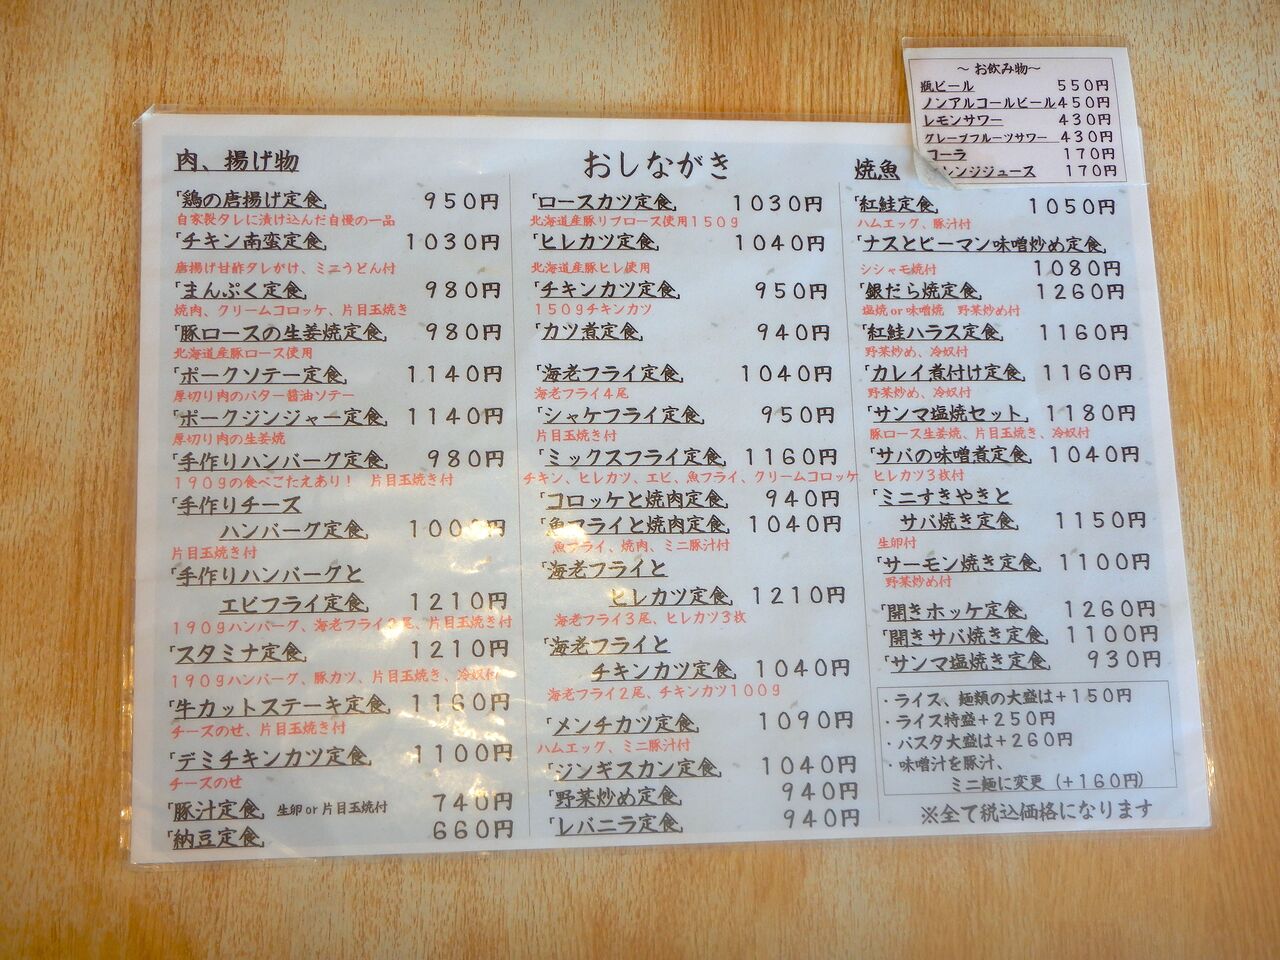 ～お飲み物～
瓶ビール 550円
ノンアルコールビール 450円
レモンサワー 430円
グレープフルーツサワー 430円
コーラ 170円
レンジジュース 170円
おしながき
肉、揚げ物
「鶏の唐揚げ定食」 950円
自家製タレに漬け込んだ自慢の一品
「チキン南蛮定食」 1030円
唐揚げ甘酢タレかけ、ミニうどん付
「まんぷく定食」 980円
焼肉、クリームコロッケ、片目玉焼き
「豚ロースの生姜焼定食」 980円
北海道産豚ロース使用
「ポークソテー定食」 1140円
厚切り肉のバター醤油ソテー
「ポークジンジャー定食」 1140円
厚切り肉の生姜焼
「手作りハンバーグ定食」 980円
190gの食べごたえあり! 片目玉焼き付
「手作りチーズ
ハンバーグ定食」
片目玉焼き付
「手作りハンバーグと
エビフライ定食」 1210円
190gハンバーグ、海老フライ2尾、片目玉焼き付
「スタミナ定食」 1210円
190gハンバーグ、豚カツ、片目玉焼き、冷奴付
「牛カットステーキ定食」 1160円
チーズのせ、片目玉焼き付
「デミチキンカツ定食」 1100円
チーズのせ
「豚汁定食」 生卵or片目玉焼付 740円
「納豆定食」 660円
「ロースカツ定食」 1030円
北海道産豚リブロース使用150g
「ヒレカツ定食」 1040円
北海道産豚ヒレ使用
「チキンカツ定食」 950円
150gチキンカツ
「カツ煮定食」 940円
「海老フライ定食」 1040円
海老フライ4尾
「シャケフライ定食」 950円
片目玉焼き付
「ミックスフライ定食」 1160円
チキン、ヒレカツ、エビ、魚フライ、クリームコロッケ
「コロッケと焼肉定食」 940円
「魚フライと焼肉定食」 1040円
魚フライ、焼肉、ミニ豚汁付
「海老フライと
ヒレカツ定食」 1210円
海老フライ3尾、ヒレカツ3枚
「海老フライと
チキンカツ定食」 1040円
海老フライ2尾、チキンカツ100g
「メンチカツ定食」 1090円
ハムエッグ、ミニ豚汁付
「ジンギスカン定食」 1040円
「野菜炒め定食」 940円
「レバニラ定食」 940円
焼魚
「紅鮭定食」 1050円
ハムエッグ、豚汁付
「ナスとピーマン味噌炒め定食」
シシャモ焼付 1080円
「銀だら焼定食」 1260円
塩焼or味噌焼 野菜炒め付
「紅鮭ハラス定食」 1160円
野菜炒め、冷奴付
「カレイ煮付け定食」 1160円
野菜炒め、冷奴付
「サンマ塩焼セット」 1180円
豚ロース生姜焼、片目玉焼き、冷奴付
「サバの味噌煮定食」 1040円
ヒレカツ3枚付
「ミニすきやきと
サバ焼き定食」 1150円
生卵付
「サーモン焼き定食」 1100円
野菜炒め付
「開きホッケ定食」 1260円
「開きサバ焼き定食」 1100円
「サンマ塩焼き定食」 930円
・ライス、麺類の大盛は+150円
・ライス特盛+250円
・パスタ大盛は+260円
・味噌汁を豚汁、
ミニ麺に変更(+160円)
※全て税込価格になります